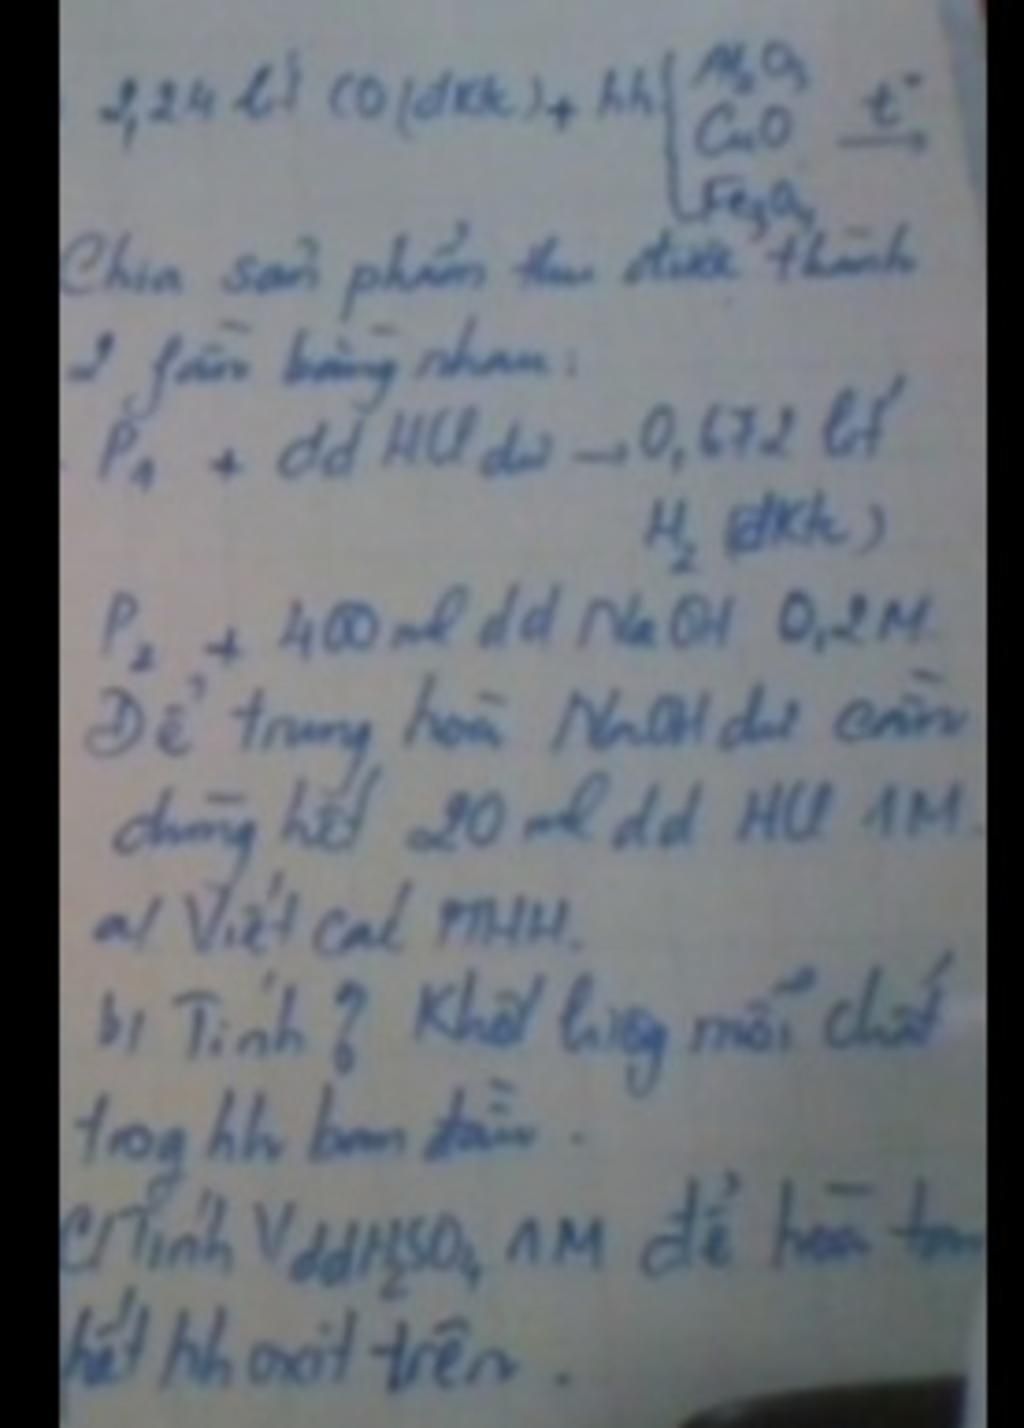 2,24 lí CO (đktc) + hh Al2O3
CuO t°
Fe3O4
Chia sản phẩm thu được thành
2 fần bằng nhau:
P1 + dd HCl dư → 0,672 lít
H2 (đktc)
P2 + 400 ml dd NaOH 0,2M.
Để trung hoà NaOH dư cần
dùng hết 20 ml dd HCl 1M.
a/ Viết các PTHH.
b/ Tính? Khối lượg mỗi chất
trog hh ban đầu.
c/ Tính VddH2SO4 1M để hoà tan
hết hh oxit trên.